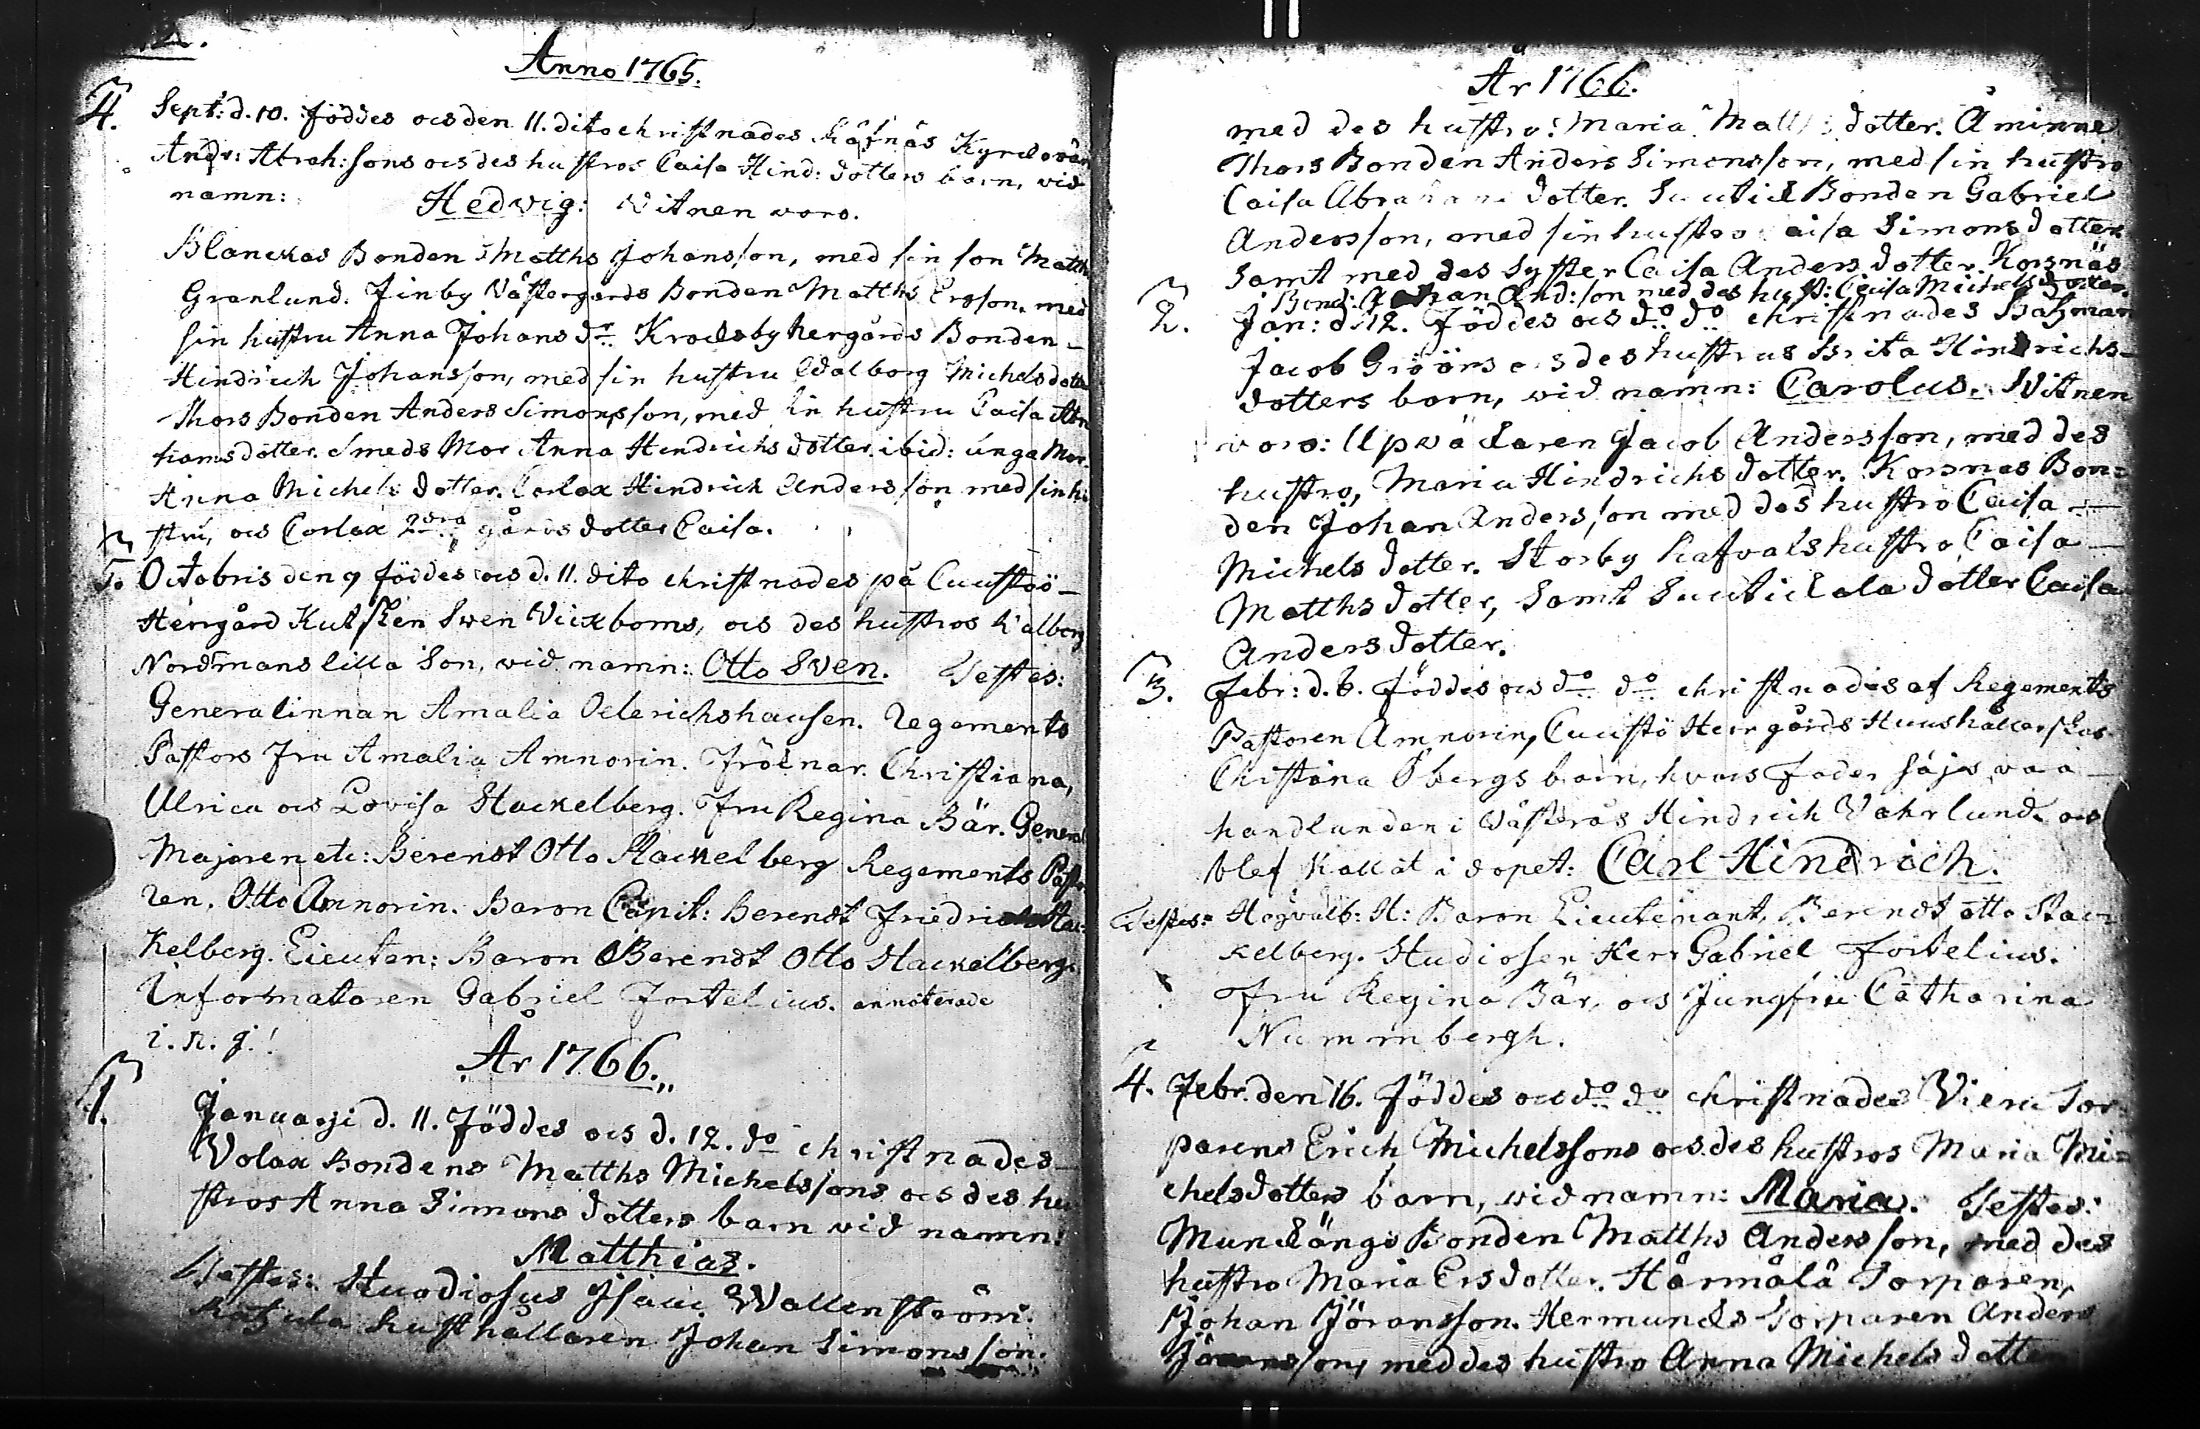 Anno 1765.
4. Sept: d. 10. föddes och den 11. dito christnades Råfnäs
Andr: Abrah: sons och des hustros Caisa Hind: dotters barn, vid
namn: Hedvig: Witnen voro.
Blanckas Bonden Matths Johansson, med sin son Matth
Granlund. Finby Västergårds Bonden Matths Ersson, med
sin hustru Anna Johans dr Krocksby Bonden
Hindrich Johansson, med sin hustru Walborg Michelsdott
Thors Bonden Anders Simonsson, med sin hustru Caisa Abra
hamsdotter. Smeds Mor Anna Hindrichs dotter. ibid: unga Mor
Anna Michels dotter. Corlax Hindrich Andersson med sin hu
stru, och Corlax 2dra gårds dotter Caisa.
5. Octobris den 9 föddes och d. 11. dito christnades på Cuustö
Herrgård Kutsken Swen Vickboms, och des hustros Valborg
Nordmans lilla Son, vid namn: Otto Sven. Testes:
Generalinnan Amalia Oelerichshausen. Regements
Pastors Fru Amalia Amnorin. Fröknar. Christiana,
Ulrica och Lovisa Stackelberg. Fru Regina Bär. General
Majoren etc: Berendt Otto Stackelberg Regements Pasto
ren, Otto Amnorin. Baron Capit: Berendt Friedrich Stac
kelberg. Lieuten: Baron Berendt Otto Stackelberg.
Informatoren Gabriel Fortelius. annoterade
i. n. j.!
År 1766.
1. Januarji d. 11. Föddes och d. 12. do christnades
Volax Bondens Matths Michelssons och des hu
stros Anna Simons dotters barn vid namn:
Matthias.
Testes: Studiosus Isaac Wallenström.
Rusthållaren Johan Simonsson.
År 1766.
med des hustro: Maria Matts: dotter. Åminne
Thors Bonden Anders Simonsson, med sin hustro
Caisa Abrahams dotter. Bonden Gabriel
Andersson, med sin hustro Caisa Simons dotter
samt med des syster Caisa Anders dotter. Korsnäs
Bond: Johan And: son med des hust: Caisa Michelsdotter.
2. Jan: d. 12. Föddes och do do christnades Båtzman
Jacob och des hustrus Brita Hindrichs
dotters barn, vid namn: Carolus. Witnen
voro: Upväcktaren Jacob Andersson, med des
hustro, Maria Hindrichs dotter. Korsnäs Bon=
den Johan Andersson med des hustro Caisa
Michels dotter. Storby hustro Caisa
Matths dotter, samt dotter Caisa
Anders dotter.
3. Febr: d. 6. föddes och do do christnades af Regements
Pastoren Amnorin, Cuustö Herrgårds Hushållerskas
Christina Öbergs barn, hvars Fader säjes vara
handlanden i Västerås Hindrich Vahrlund, och
blef kallat i dopet: Carl Hindrich.
Testes: Högvälb: H: Baron Lieutenant, Berendt Otto Stac=
kelberg. Studiosen Herr Gabriel Fortelius.
Fru Regina Bär, och Jungfru Catharina
Nummbergh.
4. Febr. den 16. Föddes och do do christnades Viern Tor
parens Erich Michelssons och des hustros Maria Mi=
chelsdotters barn, vid namn: Maria. Testes:
Munckängs Bonden Matths Andersson, med des
hustro Maria Ersdotter. Härmälä Torparen,
Johan Jöransson. Hermunds Torparen Anders
Jöransson, med des hustro Anna Michels dotter